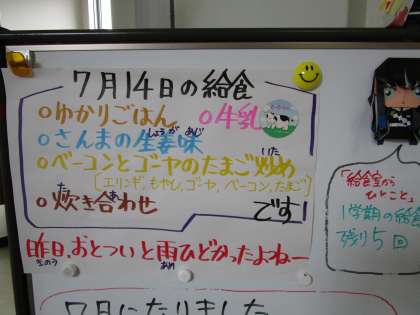 7月14日の給食
○ゆかりごはん ○牛乳
○さんまの生姜味
しょうが あじ
○ベーコンとゴーヤのたまご炒め
いた
[エリンギ、もやし、ゴーヤ、ベーコン、たまご]
○炊き合わせ です
た あ
昨日、おとついと雨ひどかったよねー
きのう あめ
「給食室から
ひとこと」
1学期の給
残り5回
7月になりました